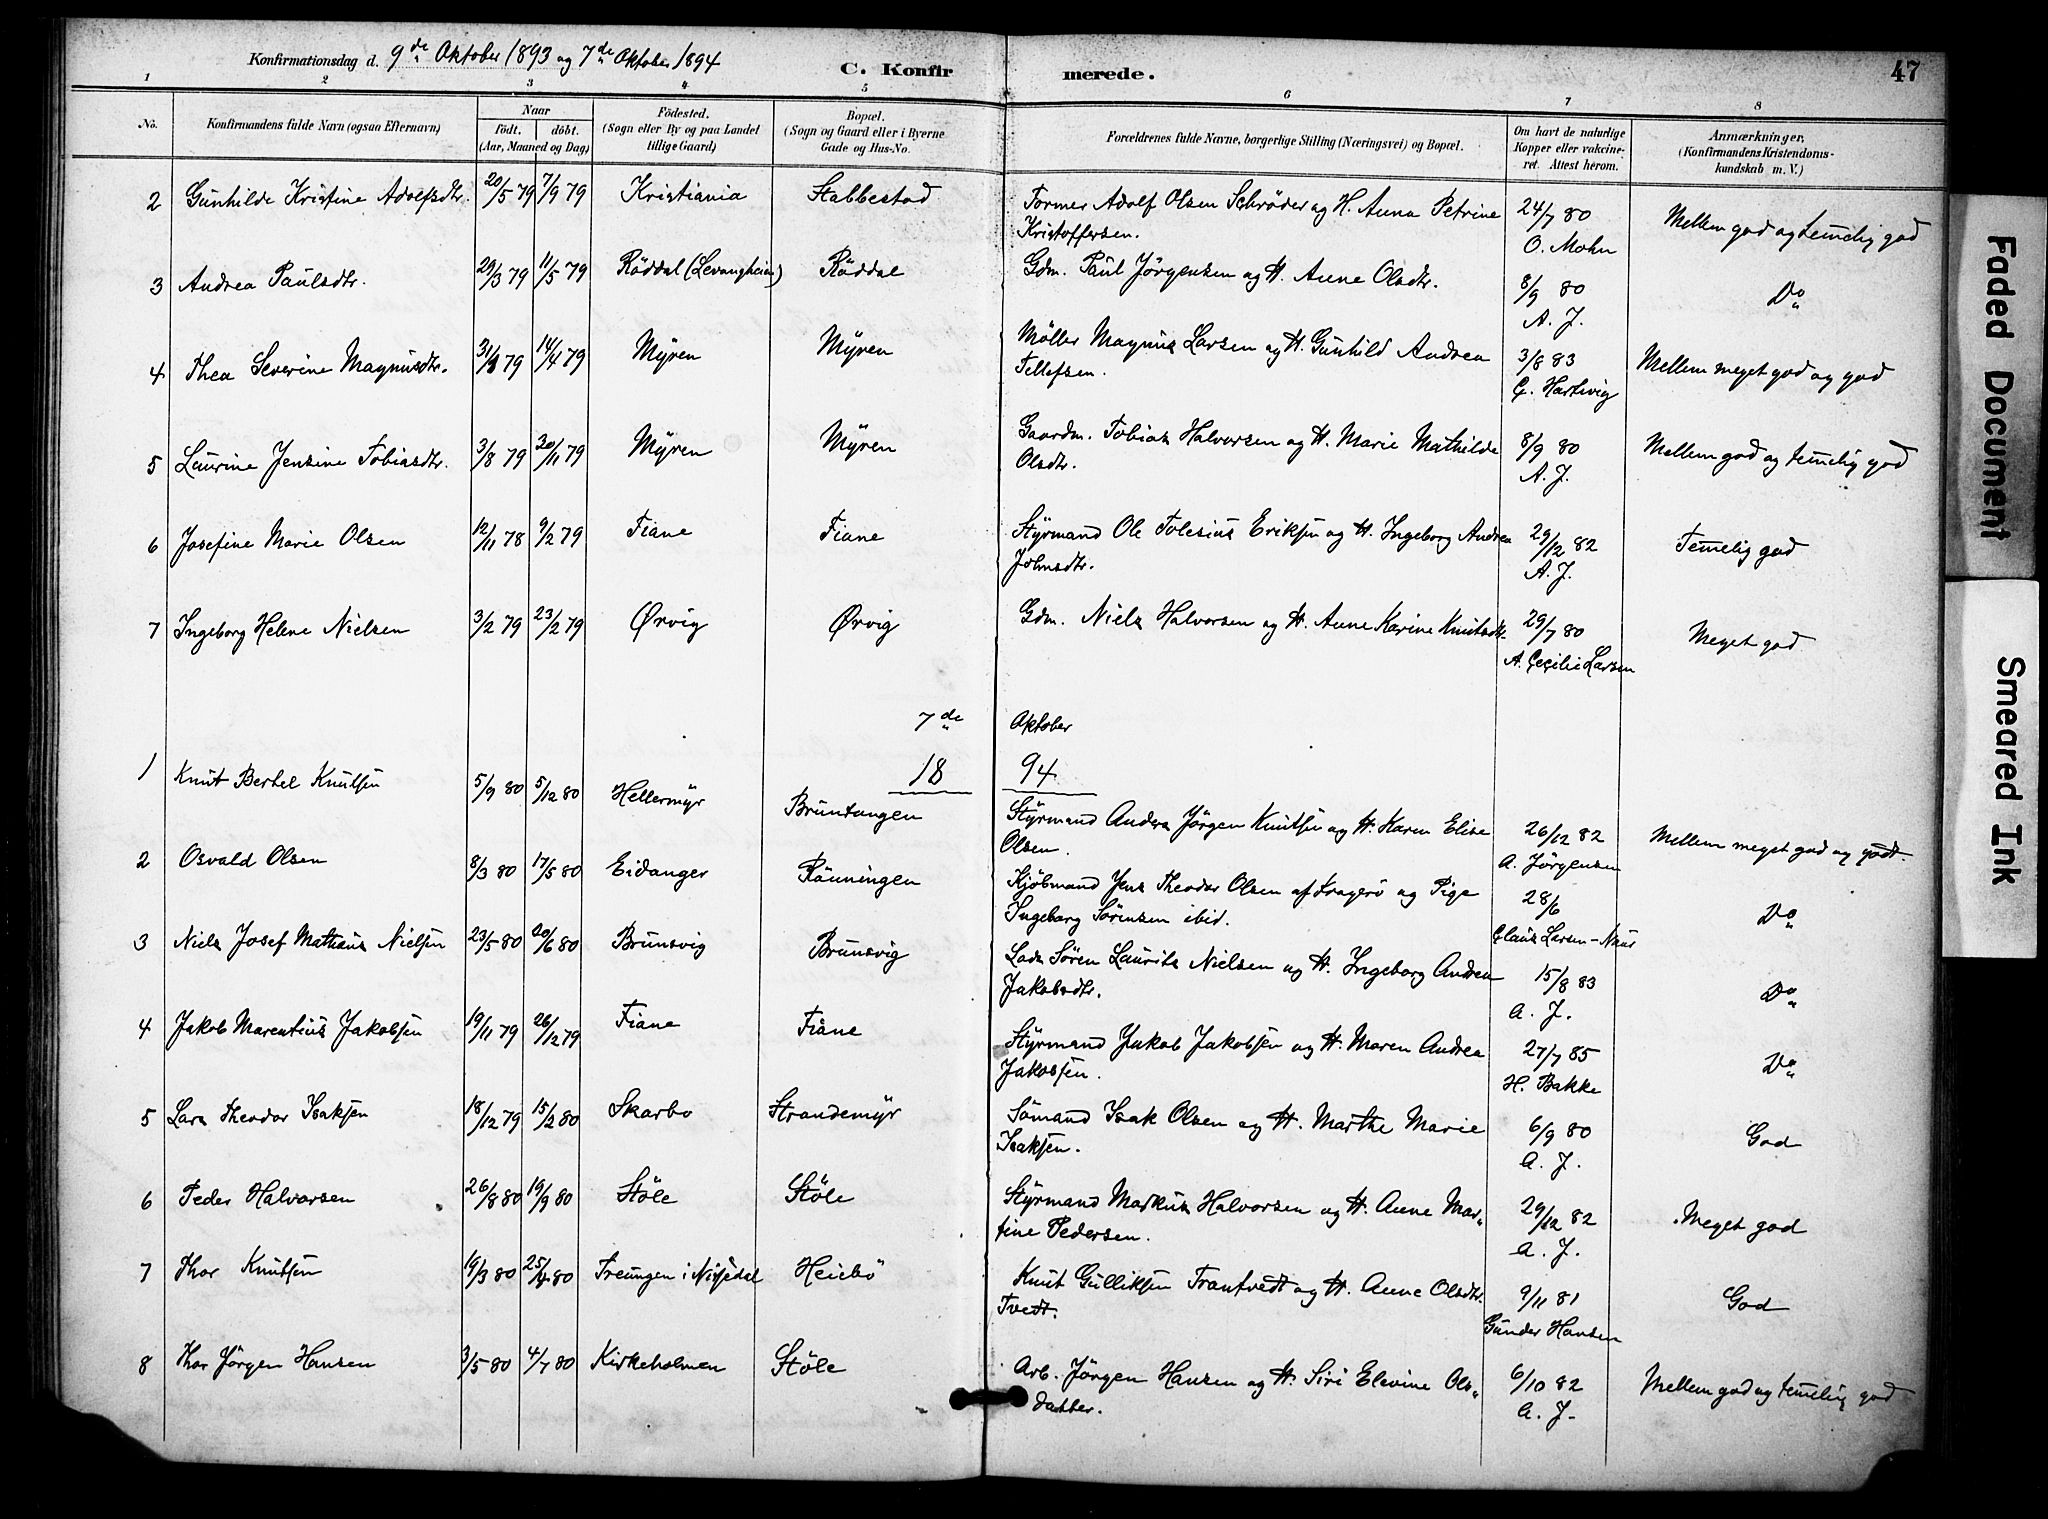 Konfirmationsdag d. 9de Oktober 1893 og 7de Oktober 1894
C. Konfirmerede.
47
1 2 3 4 5 6 7 8
No.
Konfirmandens fulde Navn (ogsaa Efternavn)
Naar
födt. döbt.
(Aar, Maaned og Dag)
Födested.
(Sogn eller By og paa Landet
tillige Gaard)
Bopæl.
(Sogn og Gaard eller i Byerne
Gade og Hus-No.
Forældrenes fulde Navne, borgerlige Stilling (Næringsvei) og Bopæl.
Om havt de naturlige
Kopper eller vakcine-
ret. Attest herom.
Anmærkninger,
(Konfirmandens Kristendoms-
kundskab m. V.)
2 Gunhilde Kristine Adolfsdtr. 20/5 79 7/9 79 Kristiania Stabbestad Former Adolf Olsen Schrøder og H. Anna Petrine
Kristoffersen. 24/7 80
O. Mohn Mellem god og temelig god
3 Andrea Paulsdtr. 29/3 79 11/5 79 Röddal (Levangheien) Röddal Gdm. Paul Jörgensen og H. Anne Olsdtr. 8/9 80
A. J. Do
4 Thea Severine Magnusdtr. 31/1 79 14/4 79 Myren Myren Møller Magnus Larsen og H. Gunhild Andrea
Tellefsen. 3/8 83
C. Hartvig Mellem meget god og god
5 Laurine Jensine Tobiasdtr. 3/8 79 30/11 79 Myren Myren Gaardm. Tobias Halvorsen og H. Marie Mathilde
Olsdtr. 8/9 80
A. J. Mellem god og temelig god
6 Josefine Marie Olsen 12/11 78 9/2 79 Fiane Fiane Styrmand Ole Tolesius Eriksen og H. Ingeborg Andrea
Johnsdtr. 29/12 82
A. J. Temelig god
7 Ingeborg Helene Nielsen 3/2 79 23/2 79 Ørvig Ørvig Gdm. Niels Halvorsen og H. Anne Karine Knutsdtr. 29/7 80
A. Cecilie Larsen Meget god
7de Oktober
18 94
1 Knut Bertel Knutsen 5/9 80 5/12 80 Hellermyr Bruntangen Styrmand Anders Jörgen Knutsen og H. Karen Elise
Olsen. 26/12 82
A. Jörgensen Mellem meget god og godt.
2 Osvald Olsen 8/3 80 17/5 80 Eidanger Rönningen Kjöbmand Jens Theodor Olsen af Kragerö og Pige
Ingeborg Sørensen ibid. 28/6
Claus Larsen-Naus Do
3 Niels Josef Mathæus Nielsen 23/5 80 20/6 80 Brunsvig Brunsvig Lods Sören Laurits Nielsen og H. Ingeborg Andrea
Jakobsdtr. 15/8 83
A. J. Do
4 Jakob Marentius Jakobsen 19/11 79 26/12 79 Fiane Fiane Styrmand Jakob Jakobsen og H. Maren Andrea
Jakobsen. 27/7 85
H. Bakke Do
5 Lars Theodor Isaksen 18/12 79 15/2 80 Skarbo Strandemyr Sømand Isak Olsen og H. Marthe Marie
Isaksen. 6/9 80
A. J. God
6 Peder Halvorsen 26/8 80 19/9 80 Stöle Stöle Styrmand Markus Halvorsen og H. Anne Mar-
tine Pedersen. 29/12 82
A. J. Meget god
7 Thor Knutsen 19/3 80 25/4 80 Treungen i Nissedal Heiebö Knut Gulliksen Trantvedt og H. Anne Olsdtr.
Tvedt. 9/11 81
Gunder Hansen God
8 Thor Jörgen Hansen 3/5 80 4/7 80 Kirkeholmen Stöle Arb. Jörgen Hansen og H. Siri Elevine Ols-
datter. 6/10 82
A. J. Mellem god og temelig god
Faded Document
Smeared Ink